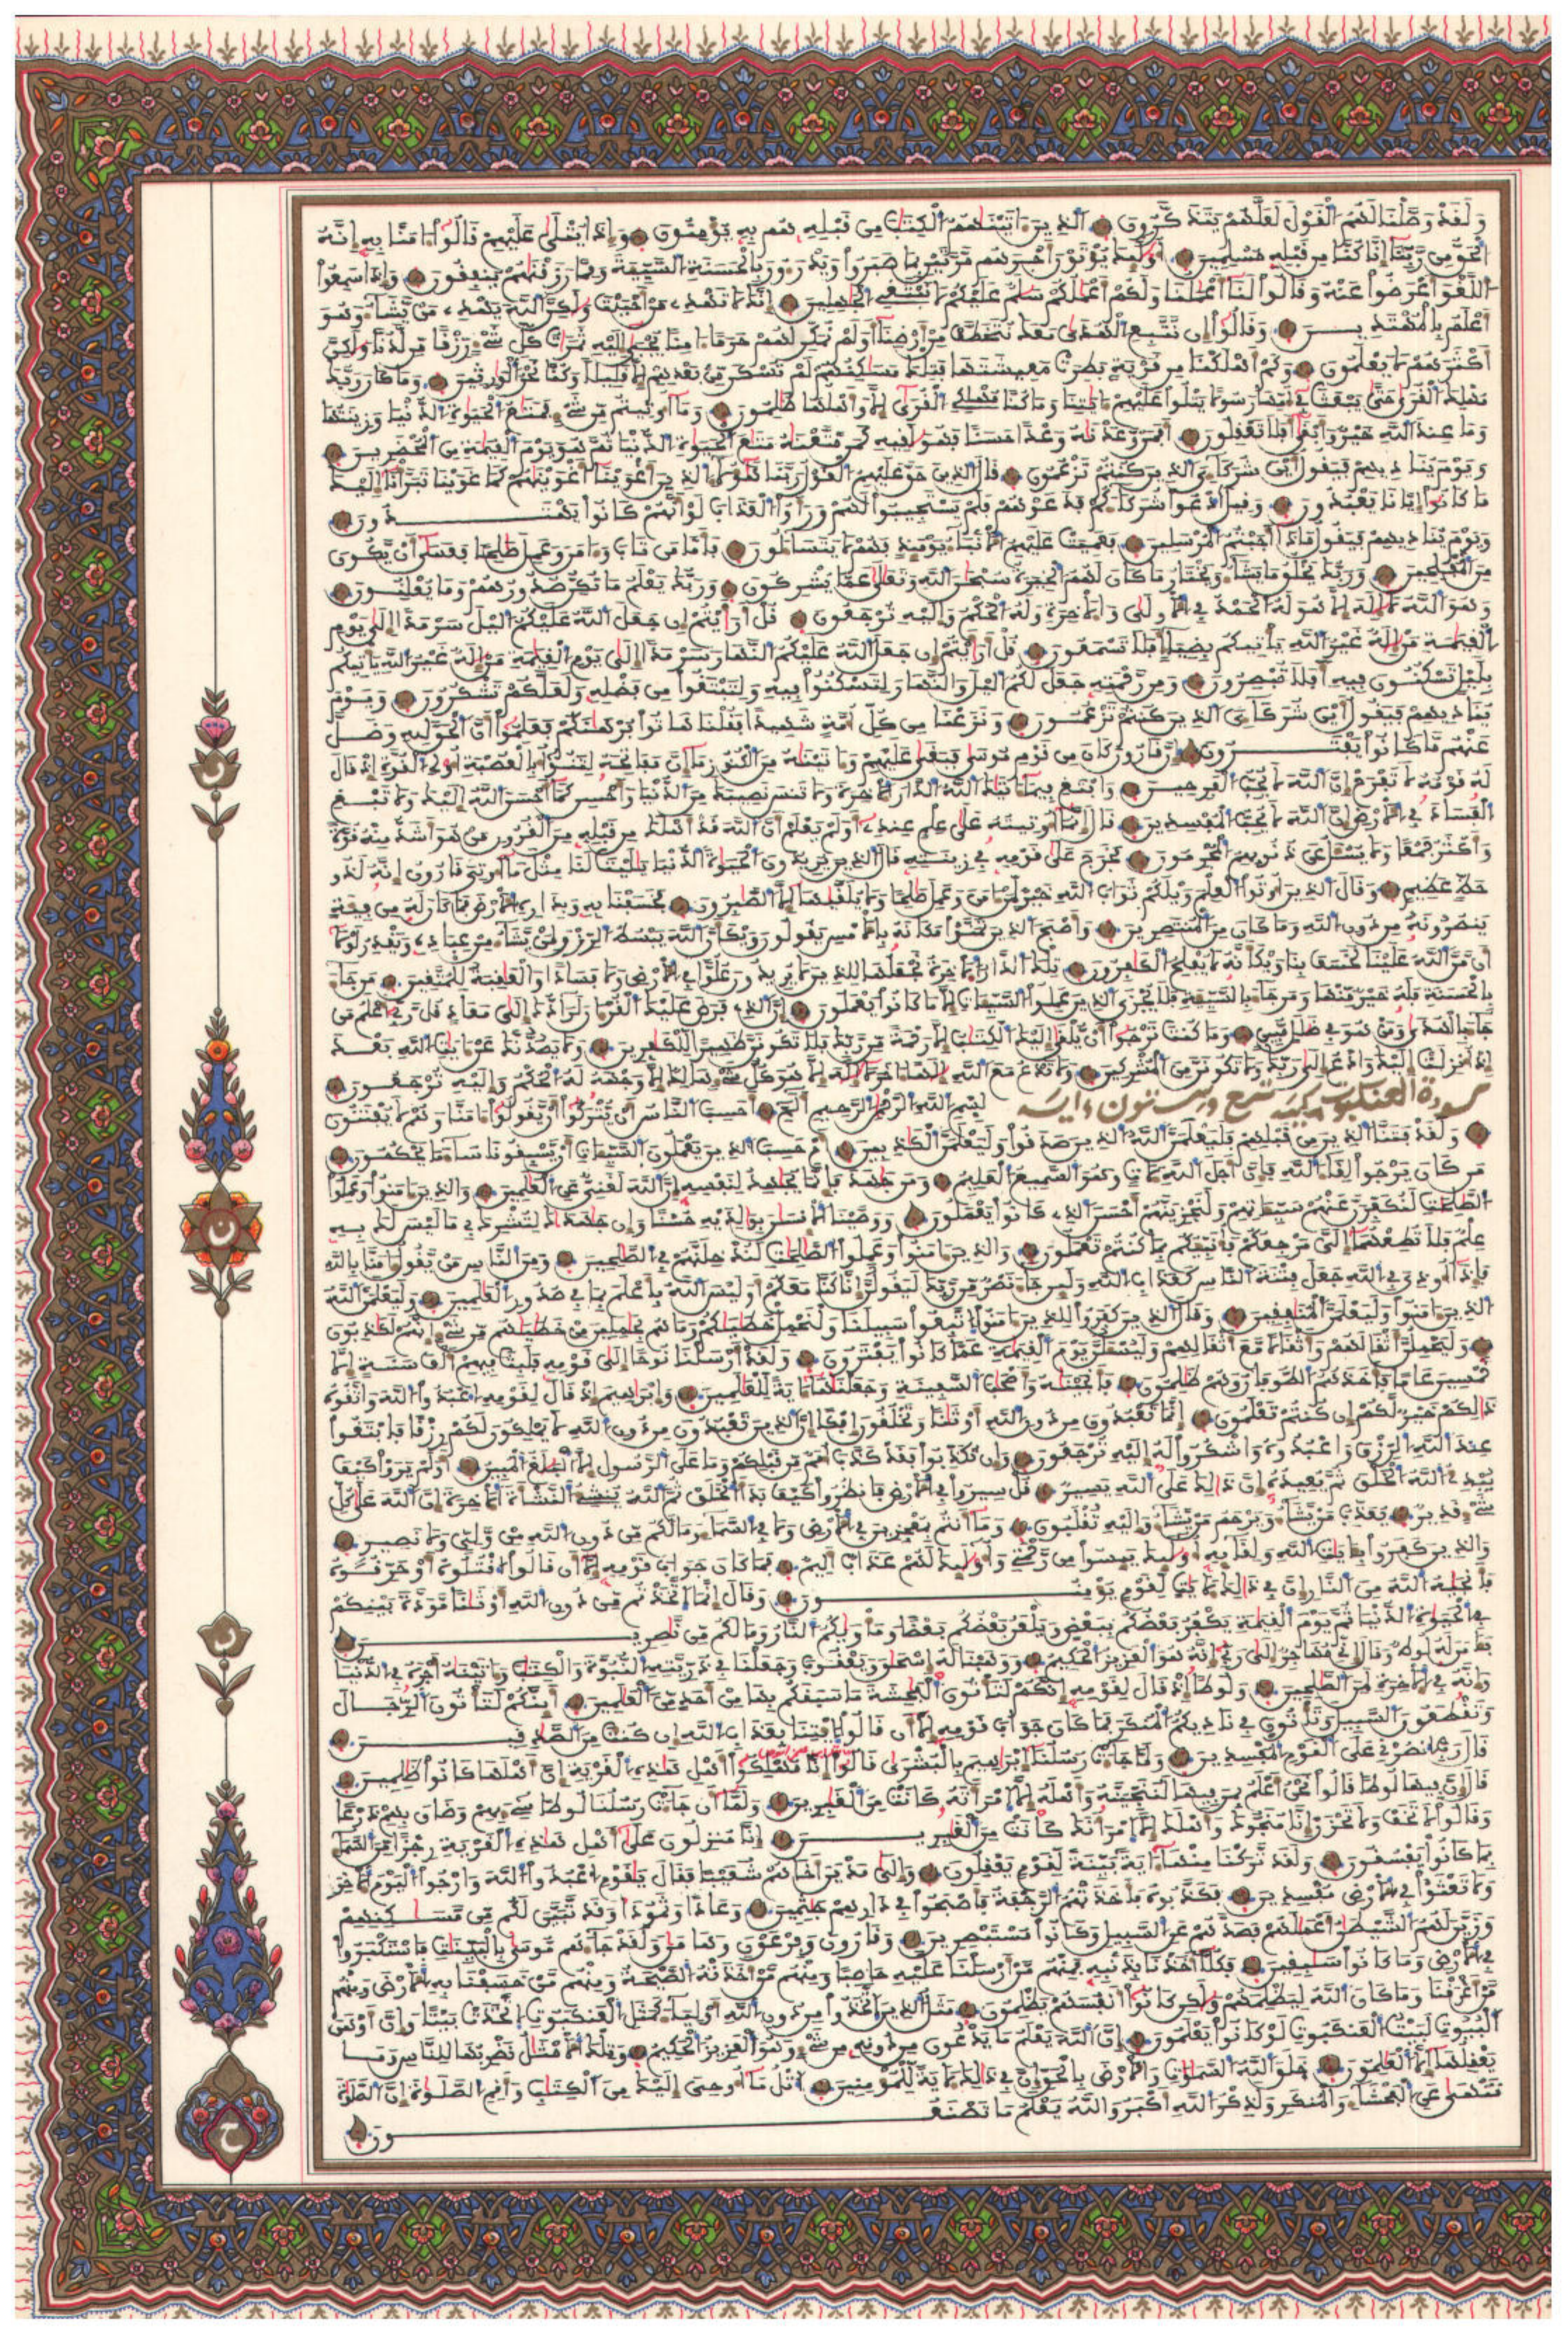 ولقد وصلنا لهم القول لعلهم يتذكرون الذين ءاتينهم الكتب من قبله هم به يومنون وإذا يتلى عليهم قالوا ءامنا به إنه
الحق من ربنا إنا كنا من قبله مسلمين أولئك يوتون أجرهم مرتين بما صبروا ويدرءون بالحسنة السيئة ومما رزقنهم ينفقون وإذا سمعوا
اللغو أعرضوا عنه وقالوا لنا أعملنا ولكم أعملكم سلم عليكم لا نبتغى الجهلين إنك لا تهدى من أحببت ولكن الله يهدى من يشاء وهو
أعلم بالمهتدين وقالوا إن نتبع الهدى معك نتخطف من أرضنا أولم نمكن لهم حرما ءامنا تجبى إليه ثمرت كل شىء رزقا من لدنا ولكن
أكثرهم لا يعلمون وكم أهلكنا من قرية بطرت معيشتها فتلك مسكنهم لم تسكن من بعدهم إلا قليلا وكنا نحن الورثين وما كان ربك
مهلك القرى حتى يبعث فى أمها رسولا يتلوا عليهم ءايتنا وما كنا مهلكى القرى إلا وأهلها ظلمون وما أوتيتم من شىء فمتع الحيوة الدنيا وزينتها
وما عند الله خير وأبقى أفلا تعقلون أفمن وعدنه وعدا حسنا فهو لقيه كمن متعنه متع الحيوة الدنيا ثم هو يوم القيمة من المحضرين
ويوم يناديهم فيقول أين شركاءى الذين كنتم تزعمون قال الذين حق عليهم القول ربنا هؤلاء الذين أغوينا أغوينهم كما غوينا تبرأنا إليك
ما كانوا إيانا يعبدون وقيل ادعوا شركاءكم فدعوهم فلم يستجيبوا لهم ورأوا العذاب لو أنهم كانوا يهتدون
ويوم يناديهم فيقول ماذا أجبتم المرسلين فعميت عليهم الأنباء يومئذ فهم لا يتساءلون فأما من تاب وءامن وعمل صلحا فعسى أن يكون
من المفلحين وربك يخلق ما يشاء ويختار ما كان لهم الخيرة سبحن الله وتعلى عما يشركون وربك يعلم ما تكن صدورهم وما يعلنون
وهو الله لا إله إلا هو له الحمد فى الأولى والأخرة وله الحكم وإليه ترجعون قل أرأيتم إن جعل الله عليكم اليل سرمدا إلى يوم
القيمة من إله غير الله ياتيكم بضياء أفلا تسمعون قل أرأيتم إن جعل الله عليكم النهار سرمدا إلى يوم القيمة من إله غير الله ياتيكم
بليل تسكنون فيه أفلا تبصرون ومن رحمته جعل لكم اليل والنهار لتسكنوا فيه ولتبتغوا من فضله ولعلكم تشكرون ويوم
يناديهم فيقول أين شركاءى الذين كنتم تزعمون ونزعنا من كل أمة شهيدا فقلنا هاتوا برهنكم فعلموا أن الحق لله وضل
عنهم ما كانوا يفترون إن قرون كان من قوم موسى فبغى عليهم وءاتينه من الكنوز ما إن مفاتحه لتنوأ بالعصبة أولى القوة إذ قال
له قومه لا تفرح إن الله لا يحب الفرحين وابتغ فيما ءاتيك الله الدار الأخرة ولا تنس نصيبك من الدنيا وأحسن كما أحسن الله إليك ولا تبغ
الفساد فى الأرض إن الله لا يحب المفسدين قال إنما أوتيته على علم عندى أولم يعلم أن الله قد أهلك من قبله من القرون من هو أشد منه قوة
وأكثر جمعا ولا يسئل عن ذنوبهم المجرمون فخرج على قومه فى زينته قال الذين يريدون الحيوة الدنيا يليت لنا مثل ما أوتى قرون إنه لذو
حظ عظيم وقال الذين أوتوا العلم ويلكم ثواب الله خير لمن ءامن وعمل صلحا ولا يلقيها إلا الصبرون فخسفنا به وبداره الأرض فما كان له من فئة
ينصرونه من دون الله وما كان من المنتصرين وأصبح الذين تمنوا مكانه بالأمس يقولون ويكأن الله يبسط الرزق لمن يشاء من عباده ويقدر لولا
أن من الله علينا لخسف بنا ويكأنه لا يفلح الكفرون تلك الدار الأخرة نجعلها للذين لا يريدون علوا فى الأرض ولا فسادا والعقبة للمتقين من جاء
بالحسنة فله خير منها ومن جاء بالسيئة فلا يجزى الذين عملوا السيئات إلا ما كانوا يعملون إن الذى فرض عليك القرءان لرادك إلى معاد قل ربى أعلم من
جاء بالهدى ومن هو فى ضلل مبين وما كنت ترجوا أن يلقى إليك الكتب إلا رحمة من ربك فلا تكونن ظهيرا للكفرين ولا يصدنك عن ءايت الله بعد
إذ أنزلت إليك وادع إلى ربك ولا تكونن من المشركين ولا تدع مع الله إلها ءاخر لا إله إلا هو كل شىء هالك إلا وجهه له الحكم وإليه ترجعون
سورة العنكبوت مكية تسع وستون ءاية بسم الله الرحمن الرحيم ألم أحسب الناس أن يتركوا أن يقولوا ءامنا وهم لا يفتنون
ولقد فتنا الذين من قبلهم فليعلمن الله الذين صدقوا وليعلمن الكذبين أم حسب الذين يعملون السيئات أن يسبقونا ساء ما يحكمون
من كان يرجوا لقاء الله فإن أجل الله لأت وهو السميع العليم ومن جهد فإنما يجهد لنفسه إن الله لغنى عن العلمين والذين ءامنوا وعملوا
الصلحت لنكفرن عنهم سيئاتهم ولنجزينهم أحسن الذى كانوا يعملون ووصينا الإنسن بولديه حسنا وإن جهدك لتشرك بى ما ليس لك به
علم فلا تطعهما إلى مرجعكم فأنبئكم بما كنتم تعملون والذين ءامنوا وعملوا الصلحت لندخلنهم فى الصلحين ومن الناس من يقول ءامنا بالله
فإذا أوذى فى الله جعل فتنة الناس كعذاب الله ولئن جاء نصر من ربك ليقولن إنا كنا معكم أوليس الله بأعلم بما فى صدور العلمين وليعلمن الله
الذين ءامنوا وليعلمن المنفقين وقال الذين كفروا للذين ءامنوا اتبعوا سبيلنا ولنحمل خطيكم وما هم بحملين من خطيهم من شىء إنهم لكذبون
وليحملن أثقالهم وأثقالا مع أثقالهم وليسئلن يوم القيمة عما كانوا يفترون ولقد أرسلنا نوحا إلى قومه فلبث فيهم ألف سنة إلا
خمسين عاما فأخذهم الطوفان وهم ظلمون فأنجينه وأصحب السفينة وجعلنها ءاية للعلمين وإبرهيم إذ قال لقومه اعبدوا الله واتقوه
ذلكم خير لكم إن كنتم تعلمون إنما تعبدون من دون الله أوثنا وتخلقون إفكا إن الذين تعبدون من دون الله لا يملكون لكم رزقا فابتغوا
عند الله الرزق واعبدوه واشكروا له إليه ترجعون وإن تكذبوا فقد كذب أمم من قبلكم وما على الرسول إلا البلغ المبين أولم يروا كيف
يبدئ الله الخلق ثم يعيده إن ذلك على الله يسير قل سيروا فى الأرض فانظروا كيف بدأ الخلق ثم الله ينشئ النشأة الأخرة إن الله على كل
شىء قدير يعذب من يشاء ويرحم من يشاء وإليه تقلبون وما أنتم بمعجزين فى الأرض ولا فى السماء وما لكم من دون الله من ولى ولا نصير
والذين كفروا بءايت الله ولقائه أولئك يئسوا من رحمتى وأولئك لهم عذاب أليم فما كان جواب قومه إلا أن قالوا اقتلوه أو حرقوه
فأنجيه الله من النار إن فى ذلك لأيت لقوم يومنون وقال إنما اتخذتم من دون الله أوثنا مودة بينكم
فى الحيوة الدنيا ثم يوم القيمة يكفر بعضكم ببعض ويلعن بعضكم بعضا ومأويكم النار وما لكم من نصرين
فءامن له لوط وقال إنى مهاجر إلى ربى إنه هو العزيز الحكيم ووهبنا له إسحق ويعقوب وجعلنا فى ذريته النبوءة والكتب وءاتينه أجره فى الدنيا
وإنه فى الأخرة لمن الصلحين ولوطا إذ قال لقومه إنكم لتاتون الفحشة ما سبقكم بها من أحد من العلمين أئنكم لتاتون الرجال
وتقطعون السبيل وتاتون فى ناديكم المنكر فما كان جواب قومه إلا أن قالوا ايتنا بعذاب الله إن كنت من الصدقين
قال رب انصرنى على القوم المفسدين ولما جاءت رسلنا إبرهيم بالبشرى قالوا إنا مهلكوا أهل هذه القرية إن أهلها كانوا ظلمين
قال إن فيها لوطا قالوا نحن أعلم بمن فيها لننجينه وأهله إلا امرأته كانت من الغبرين ولما أن جاءت رسلنا لوطا سىء بهم وضاق بهم ذرعا
وقالوا لا تخف ولا تحزن إنا منجوك وأهلك إلا امرأتك كانت من الغبرين إنا منزلون على أهل هذه القرية رجزا من السماء
بما كانوا يفسقون ولقد تركنا منها ءاية بينة لقوم يعقلون وإلى مدين أخاهم شعيبا فقال يقوم اعبدوا الله وارجوا اليوم الأخر
ولا تعثوا فى الأرض مفسدين فكذبوه فأخذتهم الرجفة فأصبحوا فى دارهم جثمين وعادا وثمودا وقد تبين لكم من مسكنهم
وزين لهم الشيطن أعملهم فصدهم عن السبيل وكانوا مستبصرين وقرون وفرعون وهمن ولقد جاءهم موسى بالبينت فاستكبروا
فى الأرض وما كانوا سبقين فكلا أخذنا بذنبه فمنهم من أرسلنا عليه حاصبا ومنهم من أخذته الصيحة ومنهم من خسفنا به الأرض ومنهم
من أغرقنا وما كان الله ليظلمهم ولكن كانوا أنفسهم يظلمون مثل الذين اتخذوا من دون الله أولياء كمثل العنكبوت اتخذت بيتا وإن أوهن
البيوت لبيت العنكبوت لو كانوا يعلمون إن الله يعلم ما تدعون من دونه من شىء وهو العزيز الحكيم وتلك الأمثل نضربها للناس وما
يعقلها إلا العلمون خلق الله السموت والأرض بالحق إن فى ذلك لأية للمومنين اتل ما أوحى إليك من الكتب وأقم الصلوة إن الصلوة
تنهى عن الفحشاء والمنكر ولذكر الله أكبر والله يعلم ما تصنعون
ر
ن
ر
ح